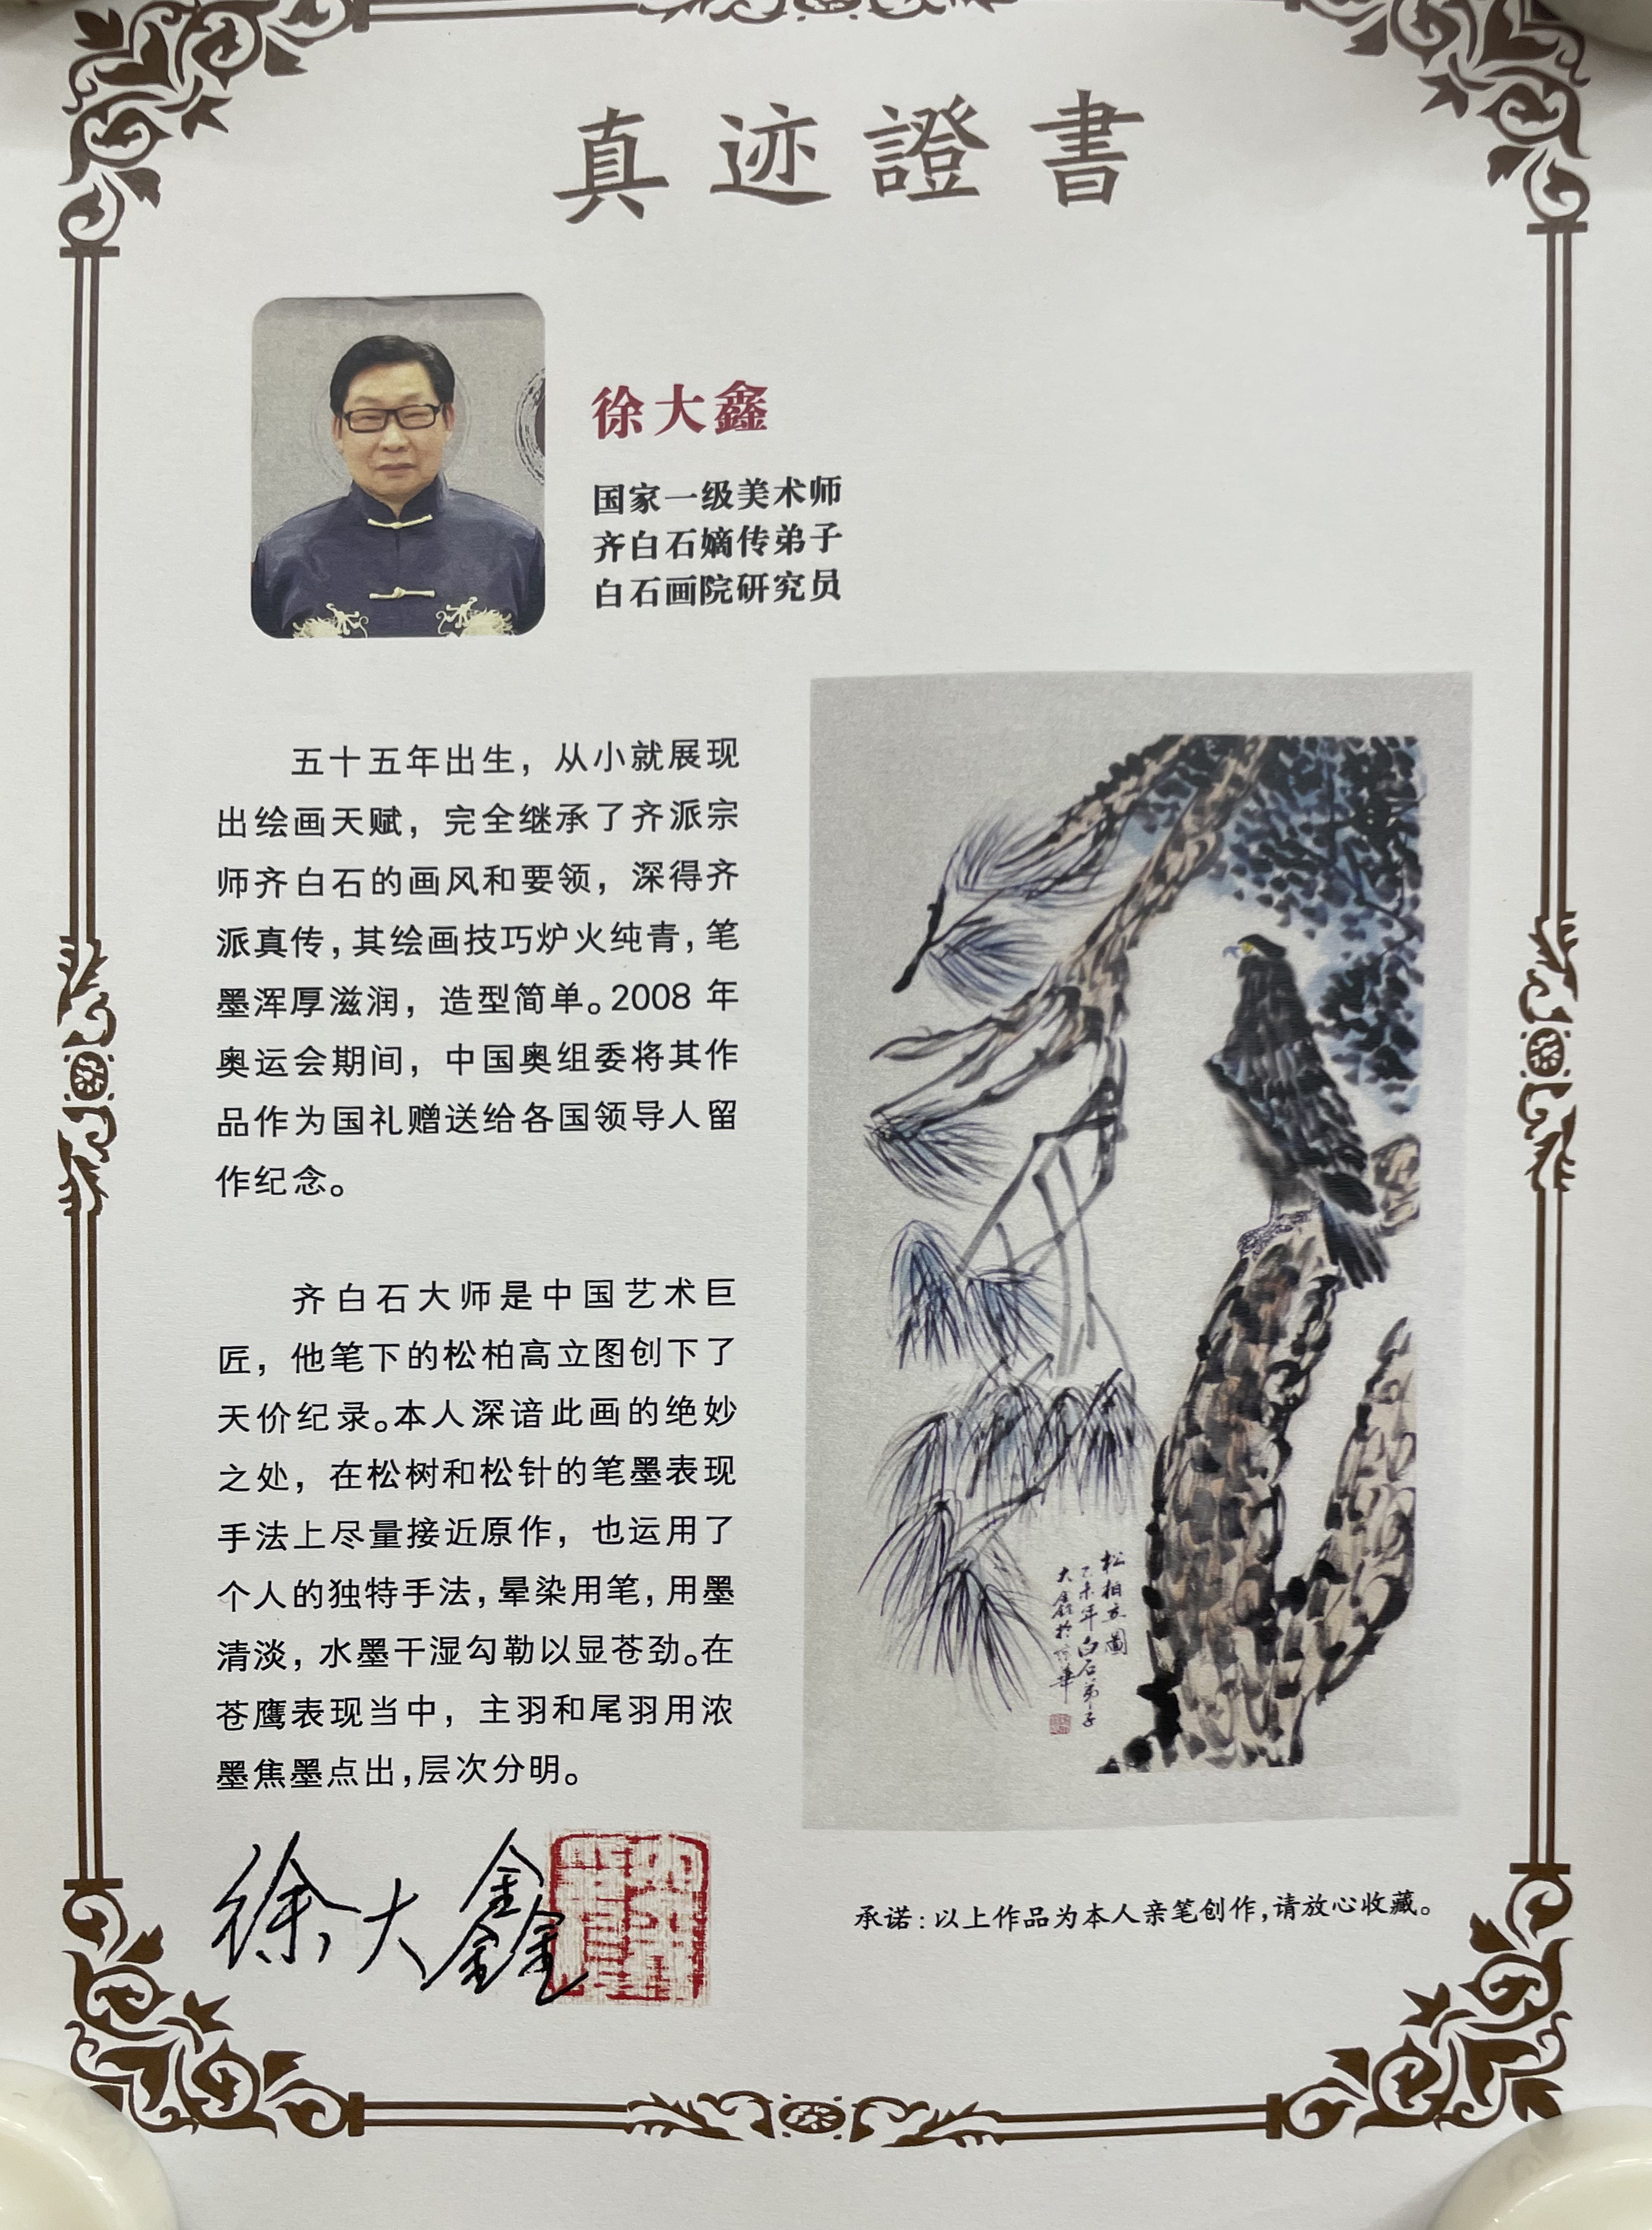 真迹證書
徐大鑫
国家一级美术师
齐白石嫡传弟子
白石画院研究员
五十五年出生，从小就展现
出绘画天赋，完全继承了齐派宗
师齐白石的画风和要领，深得齐
派真传，其绘画技巧炉火纯青，笔
墨浑厚滋润，造型简单。2008 年
奥运会期间，中国奥组委将其作
品作为国礼赠送给各国领导人留
作纪念。
齐白石大师是中国艺术巨
匠，他笔下的松柏高立图创下了
天价纪录。本人深谙此画的绝妙
之处，在松树和松针的笔墨表现
手法上尽量接近原作，也运用了
个人的独特手法，晕染用笔，用墨
清淡，水墨干湿勾勒以显苍劲。在
苍鹰表现当中，主羽和尾羽用浓
墨焦墨点出，层次分明。
松柏立圖
乙未年白石弟子
大鑫於華
徐大鑫
承诺：以上作品为本人亲笔创作，请放心收藏。